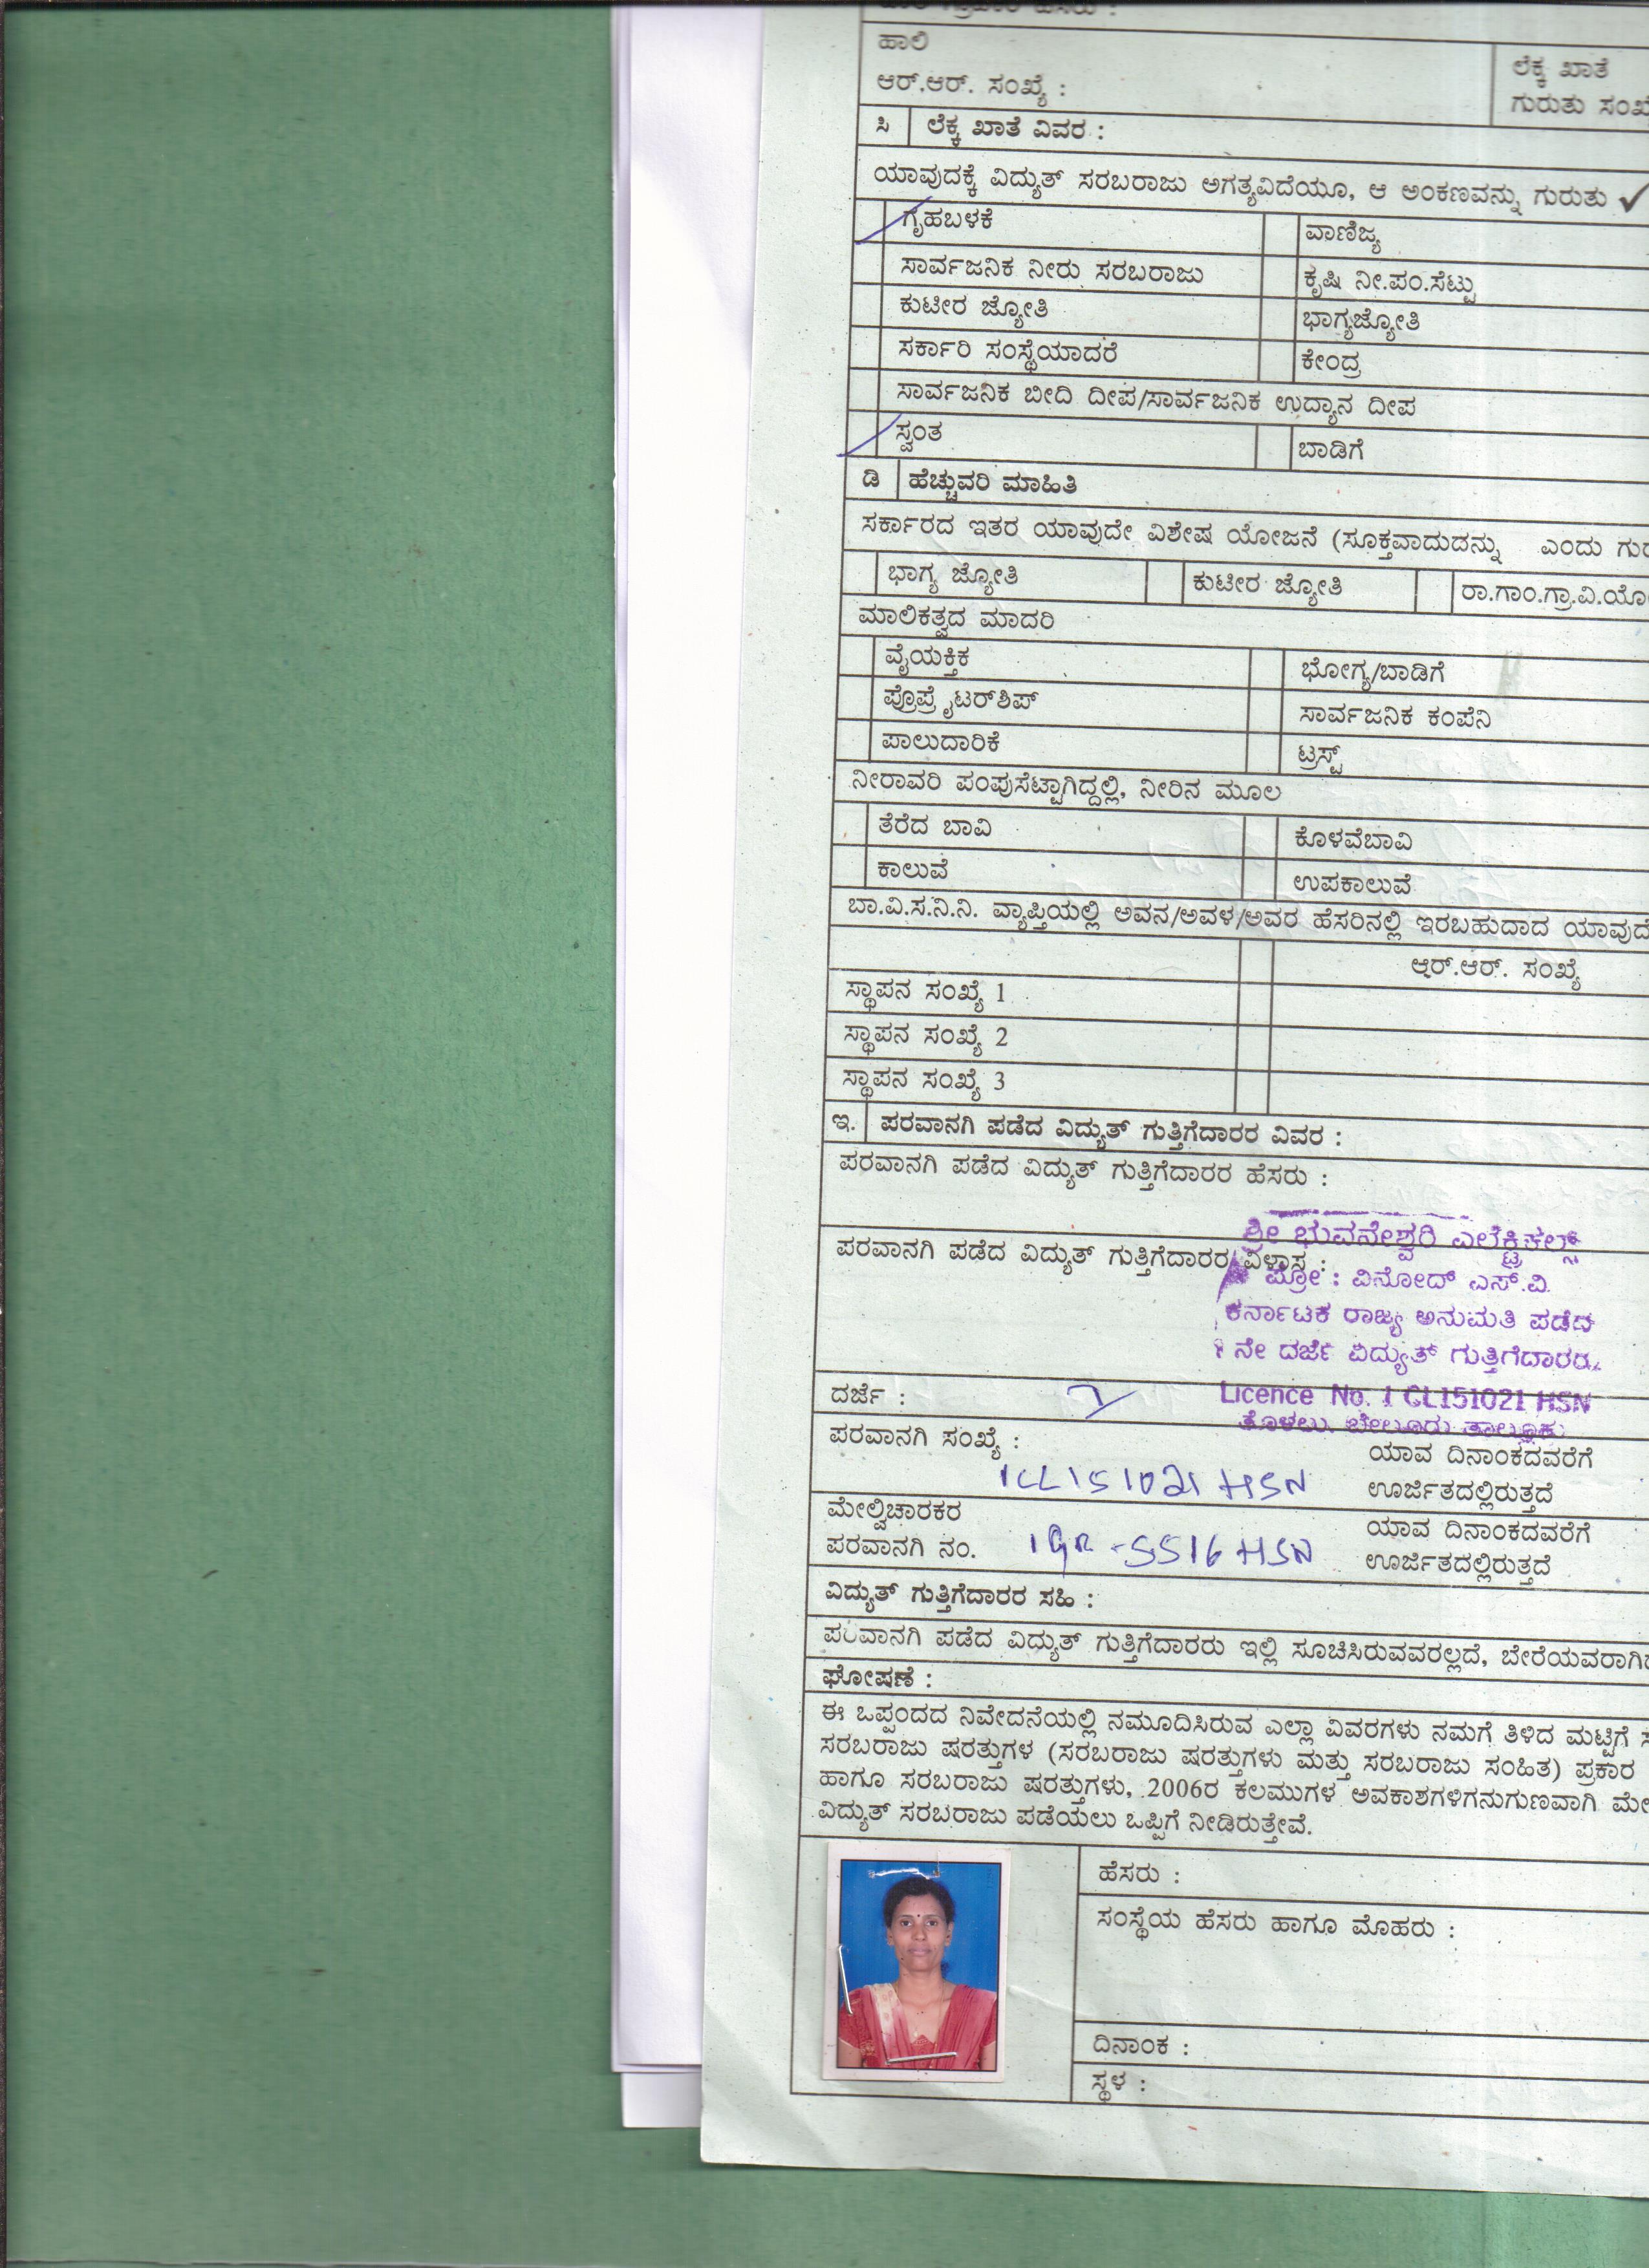 ಹಾಲಿ
ಆರ್.ಆರ್. ಸಂಖ್ಯೆ :
ಲೆಕ್ಕ ಖಾತೆ
ಗುರುತು
ಸಿ ಲೆಕ್ಕ ಖಾತೆ ವಿವರ :
ಯಾವುದಕ್ಕೆ ವಿದ್ಯುತ್ ಸರಬರಾಜು ಅಗತ್ಯವಿದೆಯೂ, ಆ ಅಂಕಣವನ್ನು ಗುರುತು ✓
ಗೃಹಬಳಕೆ ವಾಣಿಜ್ಯ
ಸಾರ್ವಜನಿಕ ನೀರು ಸರಬರಾಜು ಕೃಷಿ ನೀ.ಪಂ.ಸೆಟ್ಟು
ಕುಟೀರ ಜ್ಯೋತಿ ಭಾಗ್ಯಜ್ಯೋತಿ
ಸರ್ಕಾರಿ ಸಂಸ್ಥೆಯಾದರೆ ಕೇಂದ್ರ
ಸಾರ್ವಜನಿಕ ಬೀದಿ ದೀಪ/ಸಾರ್ವಜನಿಕ ಉದ್ಯಾನ ದೀಪ
ಸ್ವಂತ ಬಾಡಿಗೆ
ಡಿ ಹೆಚ್ಚುವರಿ ಮಾಹಿತಿ
ಸರ್ಕಾರದ ಇತರ ಯಾವುದೇ ವಿಶೇಷ ಯೋಜನೆ (ಸೂಕ್ತವಾದುದನ್ನು ಎಂದು
ಭಾಗ್ಯ ಜ್ಯೋತಿ ಕುಟೀರ ಜ್ಯೋತಿ ರಾ.ಗಾಂ.ಗ್ರಾ.ವಿ.
ಮಾಲಿಕತ್ವದ ಮಾದರಿ
ವೈಯಕ್ತಿಕ ಭೋಗ್ಯ/ಬಾಡಿಗೆ
ಪ್ರೊಪ್ರೈಟರ್‌ಶಿಪ್ ಸಾರ್ವಜನಿಕ ಕಂಪೆನಿ
ಪಾಲುದಾರಿಕೆ ಟ್ರಸ್ಟ್
ನೀರಾವರಿ ಪಂಪುಸೆಟ್ಟಾಗಿದ್ದಲ್ಲಿ, ನೀರಿನ ಮೂಲ
ತೆರೆದ ಬಾವಿ ಕೊಳವೆಬಾವಿ
ಕಾಲುವೆ ಉಪಕಾಲುವೆ
ಬಾ.ವಿ.ಸ.ನಿ.ನಿ. ವ್ಯಾಪ್ತಿಯಲ್ಲಿ ಅವನ/ಅವಳ/ಅವರ ಹೆಸರಿನಲ್ಲಿ ಇರಬಹುದಾದ
ಆರ್.ಆರ್. ಸಂಖ್ಯೆ
ಸ್ಥಾಪನ ಸಂಖ್ಯೆ 1
ಸ್ಥಾಪನ ಸಂಖ್ಯೆ 2
ಸ್ಥಾಪನ ಸಂಖ್ಯೆ 3
ಇ. ಪರವಾನಗಿ ಪಡೆದ ವಿದ್ಯುತ್ ಗುತ್ತಿಗೆದಾರರ ವಿವರ :
ಪರವಾನಗಿ ಪಡೆದ ವಿದ್ಯುತ್ ಗುತ್ತಿಗೆದಾರರ ಹೆಸರು :
ಶ್ರೀ ಭುವನೇಶ್ವರಿ ಎಲೆಕ್ಟ್ರಿಕಲ್ಸ್
ಪರವಾನಗಿ ಪಡೆದ ವಿದ್ಯುತ್ ಗುತ್ತಿಗೆದಾರರ ವಿಳಾಸ :
ಪ್ರೋ : ವಿನೋದ್ ಎಸ್.ವಿ.
ಕರ್ನಾಟಕ ರಾಜ್ಯ ಅನುಮತಿ ಪಡೆದ
ನೇ ದರ್ಜೆ ವಿದ್ಯುತ್ ಗುತ್ತಿಗೆದಾರರು
Licence No. 1 CL151021 HSN
ತೊಳಲು, ಬೇಲೂರು ತಾಲ್ಲೂಕು
ದರ್ಜೆ : I
ಪರವಾನಗಿ ಸಂಖ್ಯೆ : 1CL151021 HSN
ಯಾವ ದಿನಾಂಕದವರೆಗೆ
ಊರ್ಜಿತದಲ್ಲಿರುತ್ತದೆ
ಮೇಲ್ವಿಚಾರಕರ
ಪರವಾನಗಿ ನಂ. 5516 HSN
ಯಾವ ದಿನಾಂಕದವರೆಗೆ
ಊರ್ಜಿತದಲ್ಲಿರುತ್ತದೆ
ವಿದ್ಯುತ್ ಗುತ್ತಿಗೆದಾರರ ಸಹಿ :
ಪರವಾನಗಿ ಪಡೆದ ವಿದ್ಯುತ್ ಗುತ್ತಿಗೆದಾರರು ಇಲ್ಲಿ ಸೂಚಿಸಿರುವವರಲ್ಲದೆ,
ಘೋಷಣೆ :
ಈ ಒಪ್ಪಂದದ ನಿವೇದನೆಯಲ್ಲಿ ನಮೂದಿಸಿರುವ ಎಲ್ಲಾ ವಿವರಗಳು ನಮಗೆ ತಿಳಿದ ಮಟ್ಟಿಗೆ
ಸರಬರಾಜು ಷರತ್ತುಗಳ (ಸರಬರಾಜು ಷರತ್ತುಗಳು ಮತ್ತು ಸರಬರಾಜು ಸಂಹಿತ) ಪ್ರಕಾರ
ಹಾಗೂ ಸರಬರಾಜು ಷರತ್ತುಗಳು, 2006ರ ಕಲಮುಗಳ ಅವಕಾಶಗಳಿಗನುಗುಣವಾಗಿ
ವಿದ್ಯುತ್ ಸರಬರಾಜು ಪಡೆಯಲು ಒಪ್ಪಿಗೆ ನೀಡಿರುತ್ತೇವೆ.
ಹೆಸರು :
ಸಂಸ್ಥೆಯ ಹೆಸರು ಹಾಗೂ ಮೊಹರು :
ದಿನಾಂಕ :
ಸ್ಥಳ :